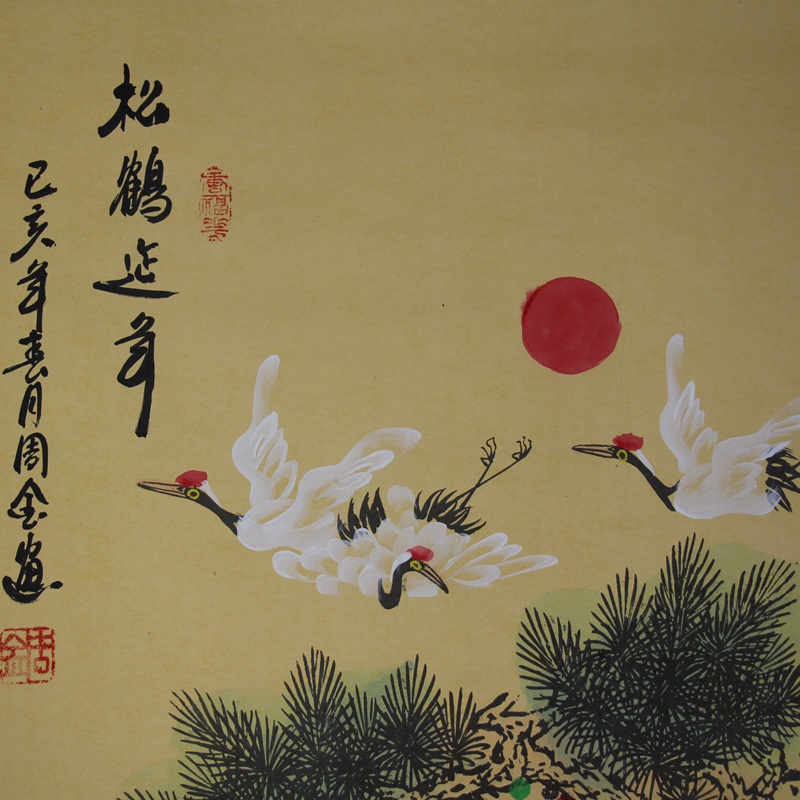 松鹤延年
己亥年春月周金画